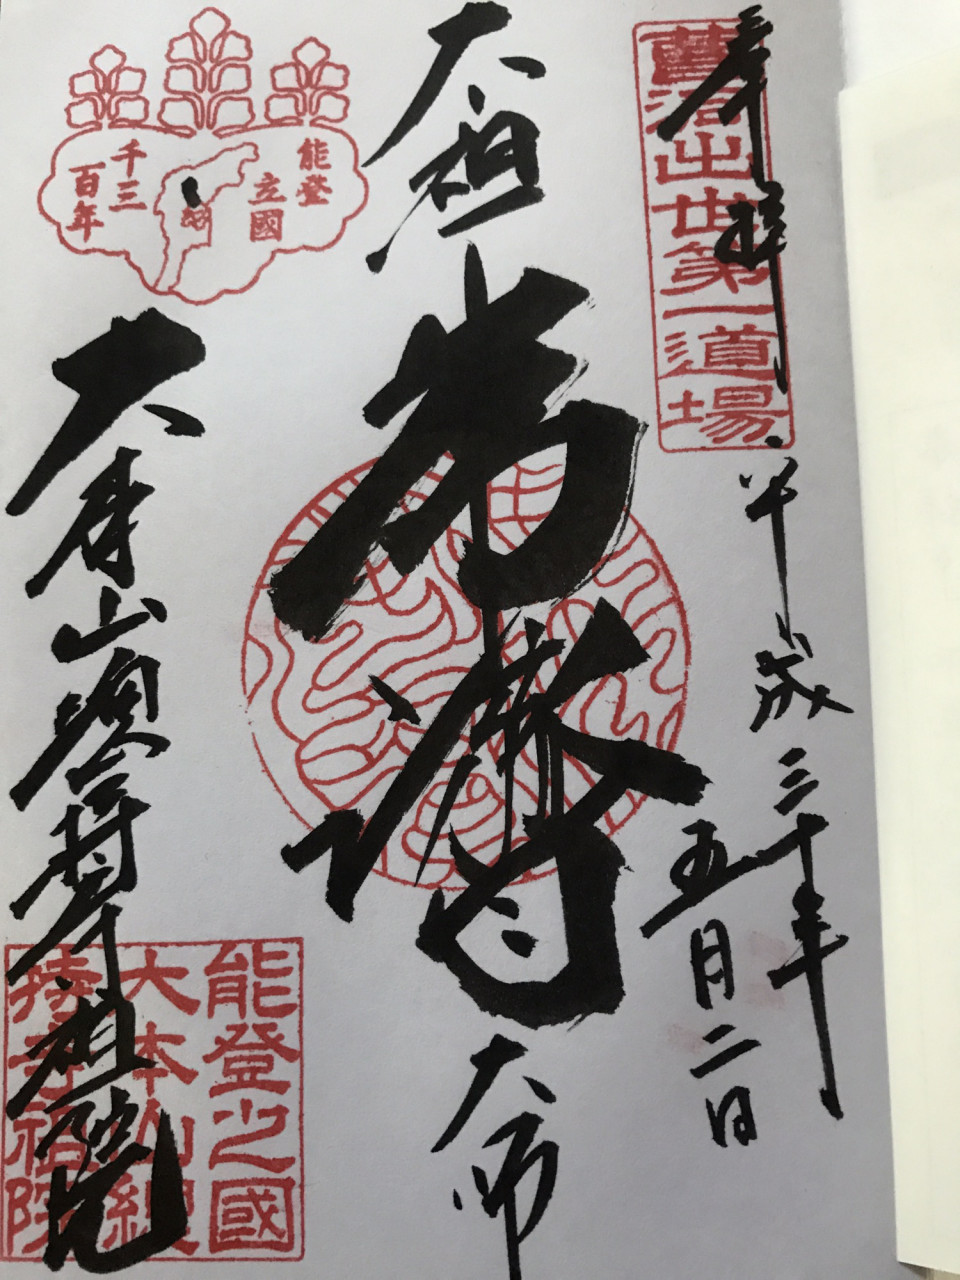 奉拝
曹洞出世第一道場
平成三十年
五月二日
大祖
常濟
大師
能登
立國
千三
百年
大本山總持寺祖院
能登之國
大本山總
持寺祖院